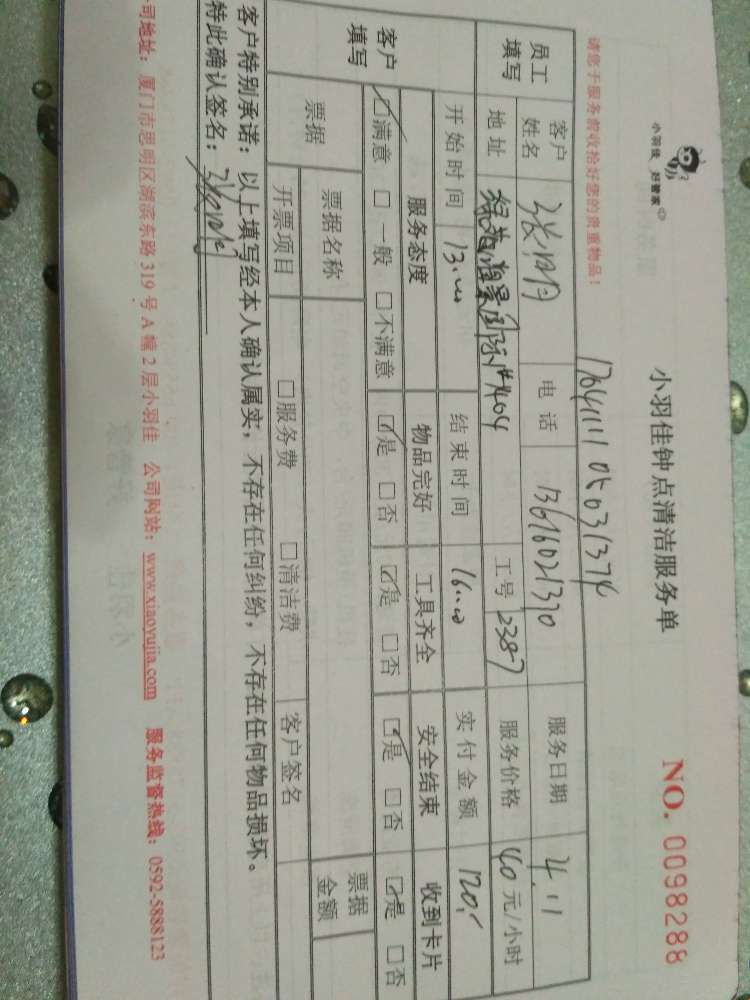 小羽佳 好管家
小羽佳钟点清洁服务单
NO. 0098288
请您于服务前收拾好您的贵重物品！
员工填写
客户姓名
电话 13616021370
服务日期 4.11
地址
工号 2387
服务价格 40 元/小时
开始时间 13:00
结束时间 16:00
实付金额 120.-
客户填写
服务态度 物品完好 工具齐全 安全结束 收到卡片
☑满意 □一般 □不满意 ☑是 □否 ☑是 □否 ☑是 □否 ☑是 □否
票据
票据名称
票据金额
开票项目 □服务费 □清洁费 客户签名
客户特别承诺：以上填写经本人确认属实，不存在任何纠纷，不存在任何物品损坏。
特此确认签名：
司地址：厦门市思明区湖滨东路 319 号 A 幢 2 层小羽佳 公司网站：www.xiaoyujia.com 服务监督热线：0592-5888123